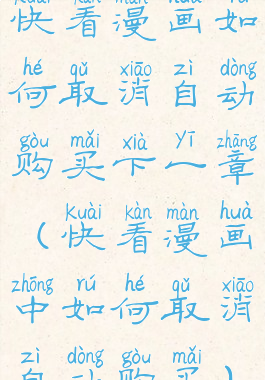 kuài kàn màn huà rú
快看漫画如
hé qǔ xiāo zì dòng
何取消自动
gòu mǎi xià yī zhāng
购买下一章
kuài kàn màn huà
（快看漫画
zhōng rú hé qǔ xiāo
中如何取消
zì dòng gòu mǎi
自动购买）